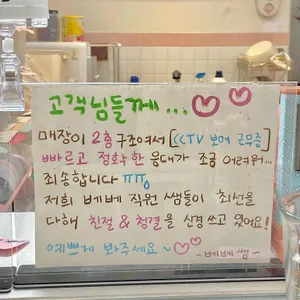 고객님들께...♡♡
매장이 2층 구조여서 [CCTV 보며 근무중]
빠르고 정확한 응대가 조금 어려워...
죄송합니다 ㅠㅠ
저희 베베 직원 쌤들이 최선을
다해 친절 & 청결을 신경 쓰고 있어요!
예쁘게 봐주세요~♡♡
-베베쌤-